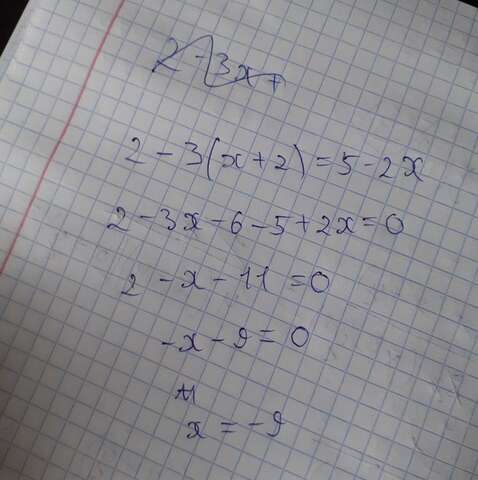 2 - 3(x + 2) = 5 - 2x
2 - 3x - 6 - 5 + 2x = 0
2 - x - 11 = 0
-x - 9 = 0
x = -9